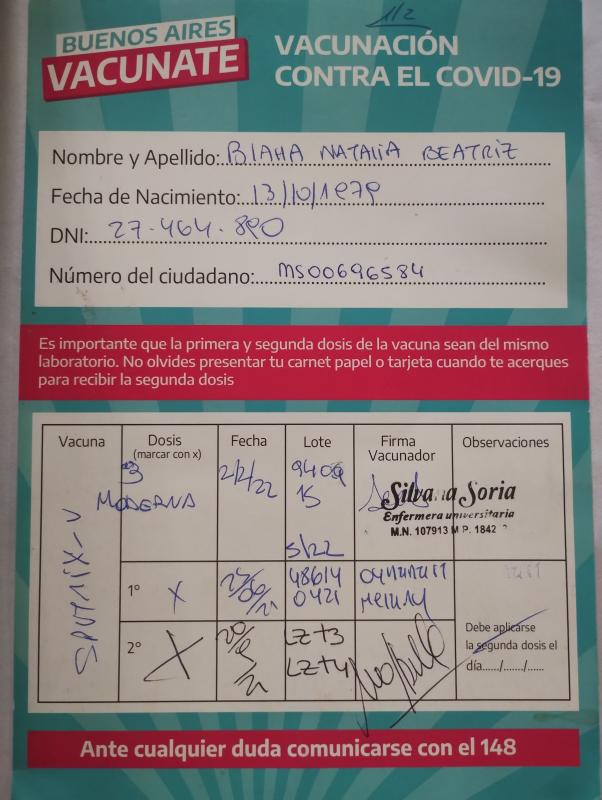 1/2
BUENOS AIRES
VACUNATE
VACUNACIÓN
CONTRA EL COVID-19
Nombre y Apellido: BLAHA NATALIA BEATRIZ
Fecha de Nacimiento: 13/10/1979
DNI: 27.464.890
Número del ciudadano: MS00696584
Es importante que la primera y segunda dosis de la vacuna sean del mismo
laboratorio. No olvides presentar tu carnet papel o tarjeta cuando te acerques
para recibir la segunda dosis
Vacuna
Dosis
(marcar con x)
Fecha
Lote
Firma
Vacunador
Observaciones
SPUTNIX-V
3
MODERNA
2/2/22
9409
15
5/22
Silvana Soria
Enfermera universitaria
M.N. 107913 M P. 1842
1º
X
48614
0421
2º
X
LZ+3
LZ+4
Debe aplicarse
la segunda dosis el
día...../....../......
Ante cualquier duda comunicarse con el 148